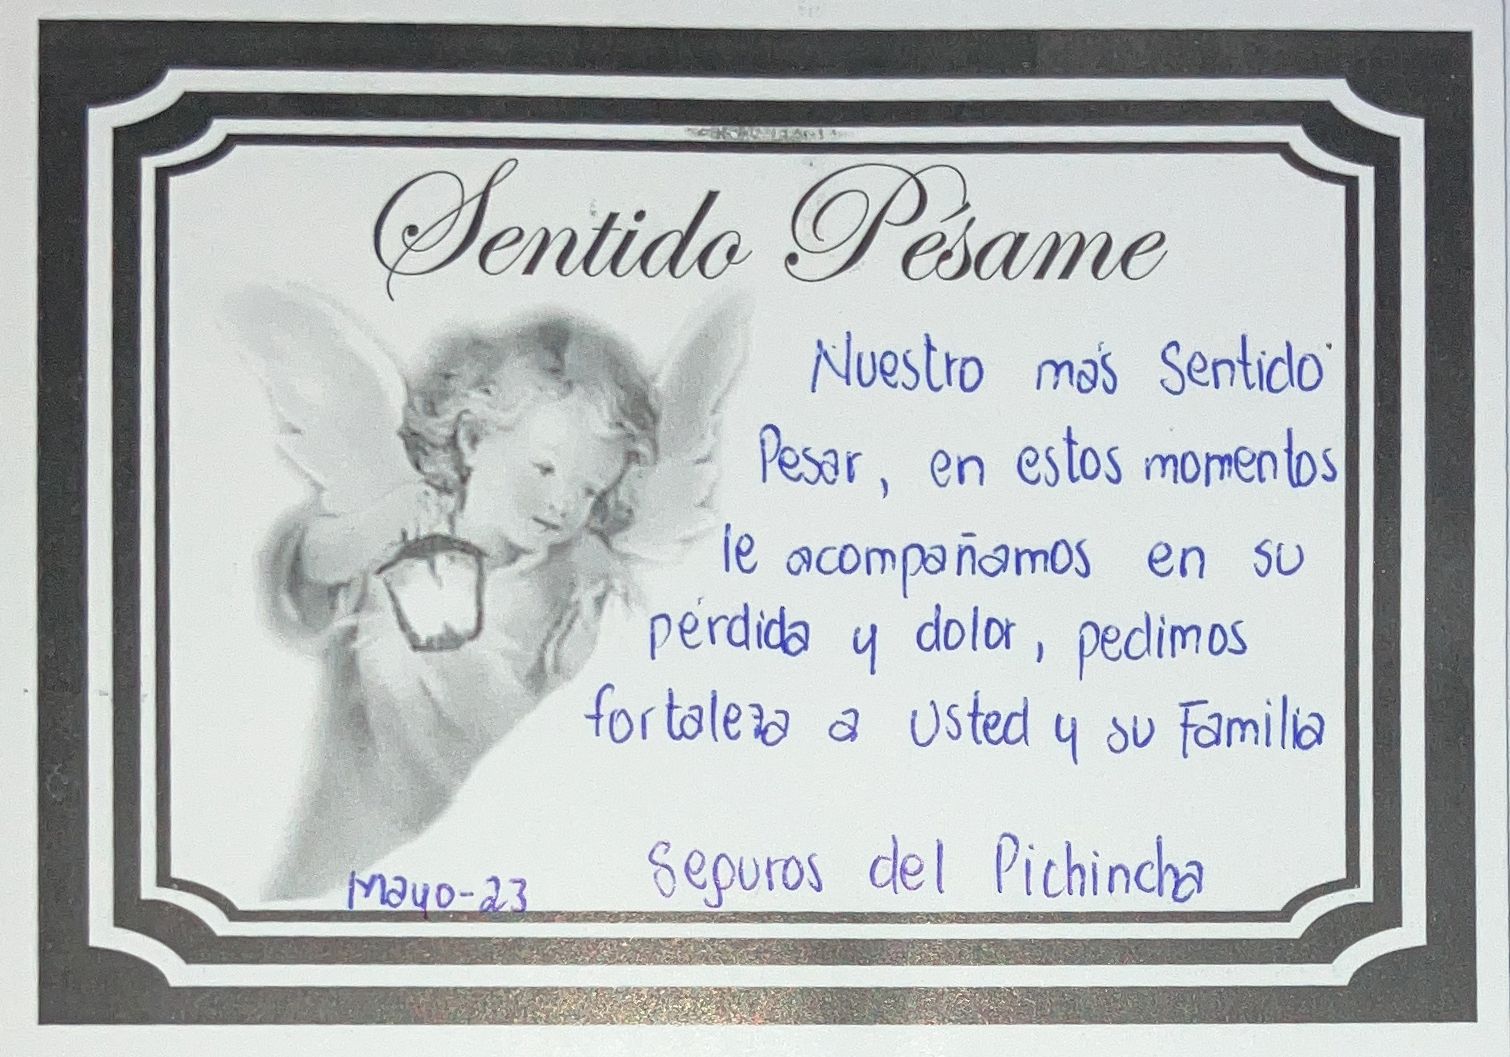 Sentido Pésame
Nuestro más Sentido
Pesar, en estos momentos
le acompañamos en su
pérdida y dolor, pedimos
fortaleza a usted y su Familia
Seguros del Pichincha
Mayo-23